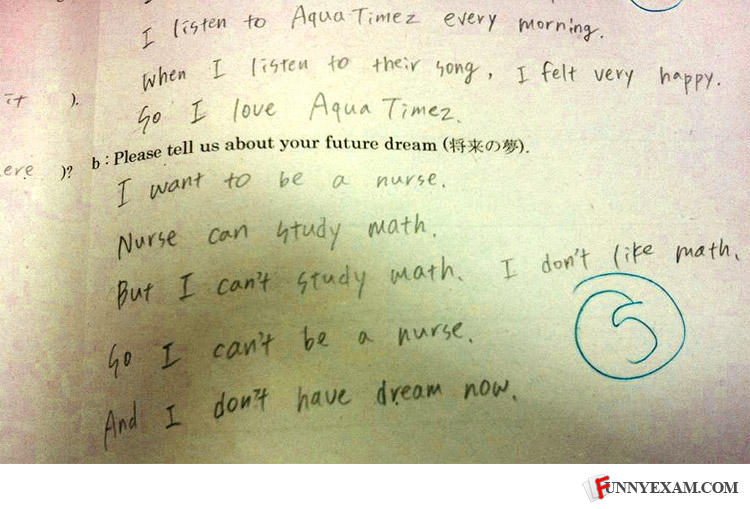 I listen to Aqua Timez every morning.
When I listen to their song, I felt very happy.
it ).
So I love Aqua Timez.
ere )? b : Please tell us about your future dream (将来の夢).
I want to be a nurse.
Nurse can study math.
But I can't study math. I don't like math.
So I can't be a nurse.
5
And I don't have dream now.
FUNNYEXAM.COM